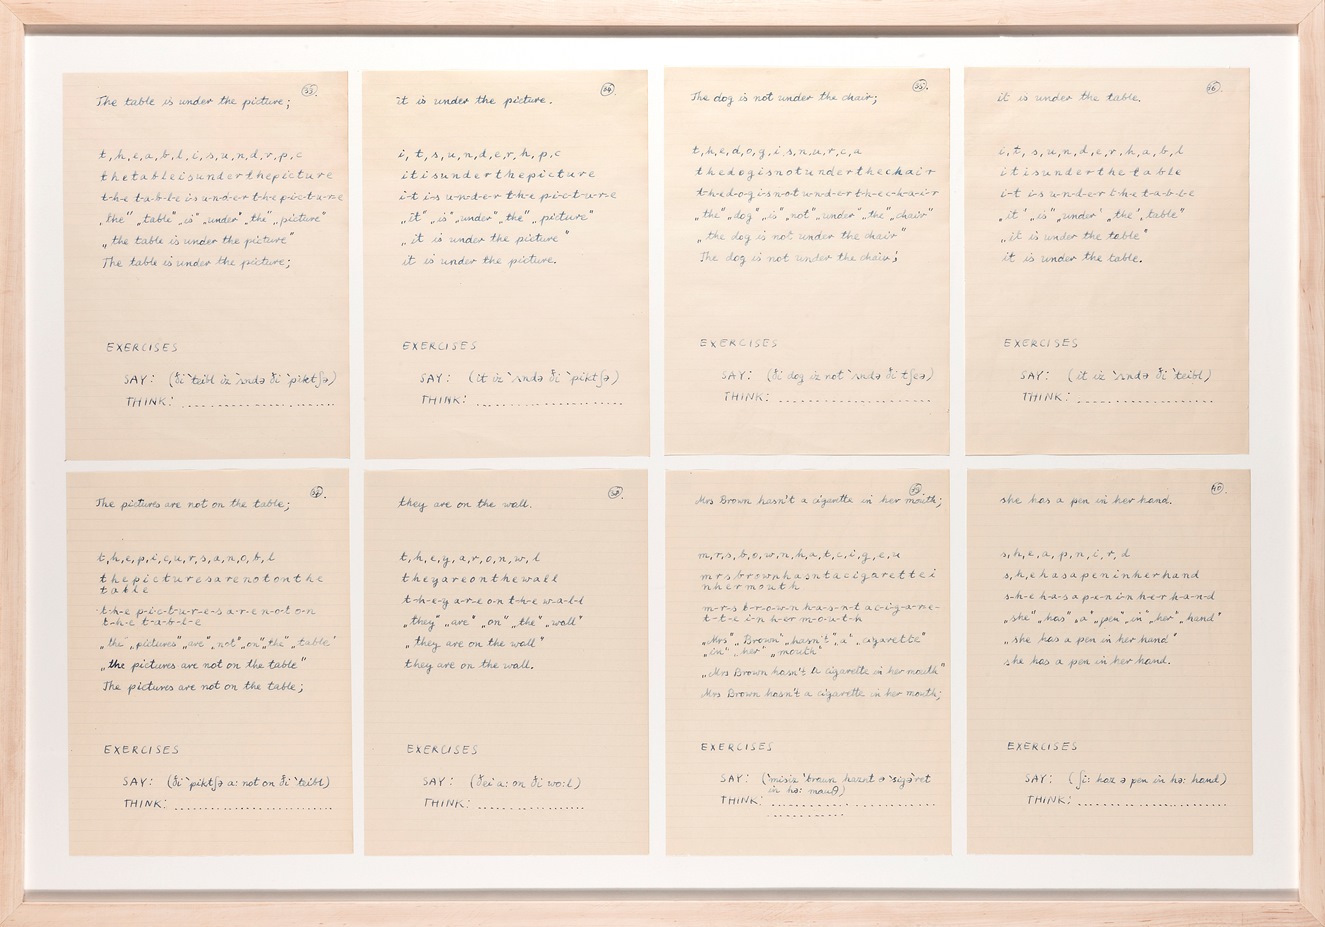 33.
The table is under the picture;
t, h, e, a, b, l, i, s, u, n, d, r, p, c
thetableisunderthepicture
t-h-e t-a-b-l-e i-s u-n-d-e-r t-h-e p-i-c-t-u-r-e
„the" „table" „is" „under" „the" „picture"
„the table is under the picture"
The table is under the picture;
EXERCISES
SAY: (ði ˋteibl iz ˋʌndə ði ˋpiktʃə)
THINK: ..............................
34.
it is under the picture.
i, t, s, u, n, d, e, r, h, p, c
itisunderthepicture
i-t i-s u-n-d-e-r t-h-e p-i-c-t-u-r-e
„it" „is" „under" „the" „picture"
„it is under the picture"
it is under the picture.
EXERCISES
SAY: (it iz ˋʌndə ði ˋpiktʃə)
THINK: ..............................
35.
The dog is not under the chair;
t, h, e, d, o, g, i, s, n, u, r, c, a
thedogisnotunderthechair
t-h-e d-o-g i-s n-o-t u-n-d-e-r t-h-e c-h-a-i-r
„the" „dog" „is" „not" „under" „the" „chair"
„the dog is not under the chair"
The dog is not under the chair;
EXERCISES
SAY: (ði dog iz not ˋʌndə ði tʃeə)
THINK: ..............................
36.
it is under the table.
i, t, s, u, n, d, e, r, h, a, b, l
itisunderthetable
i-t i-s u-n-d-e-r t-h-e t-a-b-l-e
„it" „is" „under" „the" „table"
„it is under the table"
it is under the table.
EXERCISES
SAY: (it iz ˋʌndə ði ˋteibl)
THINK: ..............................
37.
The pictures are not on the table;
t, h, e, p, i, c, u, r, s, a, n, o, b, l
thepicturesarenotonthe
table
t-h-e p-i-c-t-u-r-e-s a-r-e n-o-t o-n
t-h-e t-a-b-l-e
„the" „pictures" „are" „not" „on" „the" „table"
„the pictures are not on the table"
The pictures are not on the table;
EXERCISES
SAY: (ði ˋpiktʃə a: not on ði ˋteibl)
THINK: ..............................
38.
they are on the wall.
t, h, e, y, a, r, o, n, w, l
theyareonthewall
t-h-e-y a-r-e o-n t-h-e w-a-l-l
„they" „are" „on" „the" „wall"
„they are on the wall"
they are on the wall.
EXERCISES
SAY: (ðei a: on ði wo:l)
THINK: ..............................
39.
Mrs Brown hasn't a cigarette in her mouth;
m, r, s, b, o, w, n, h, a, t, c, i, g, e, u
mrsbrownhasntacigarettei
nhermouth
m-r-s b-r-o-w-n h-a-s-n-t a c-i-g-a-r-e-
t-t-e i-n h-e-r m-o-u-t-h
„Mrs" „Brown" „hasn't" „a" „cigarette"
„in" „her" „mouth"
„Mrs Brown hasn't a cigarette in her mouth"
Mrs Brown hasn't a cigarette in her mouth;
EXERCISES
SAY: (ˋmisiz ˋbraun haznt ə ˋsigəˋret
in hə: mauθ)
THINK: ..............................
...............
40.
she has a pen in her hand.
s, h, e, a, p, n, i, r, d
shehasapeninherhand
s-h-e h-a-s a p-e-n i-n h-e-r h-a-n-d
„she" „has" „a" „pen" „in" „her" „hand"
„she has a pen in her hand"
she has a pen in her hand.
EXERCISES
SAY: (ʃi: haz ə pen in hə: hand)
THINK: ..............................